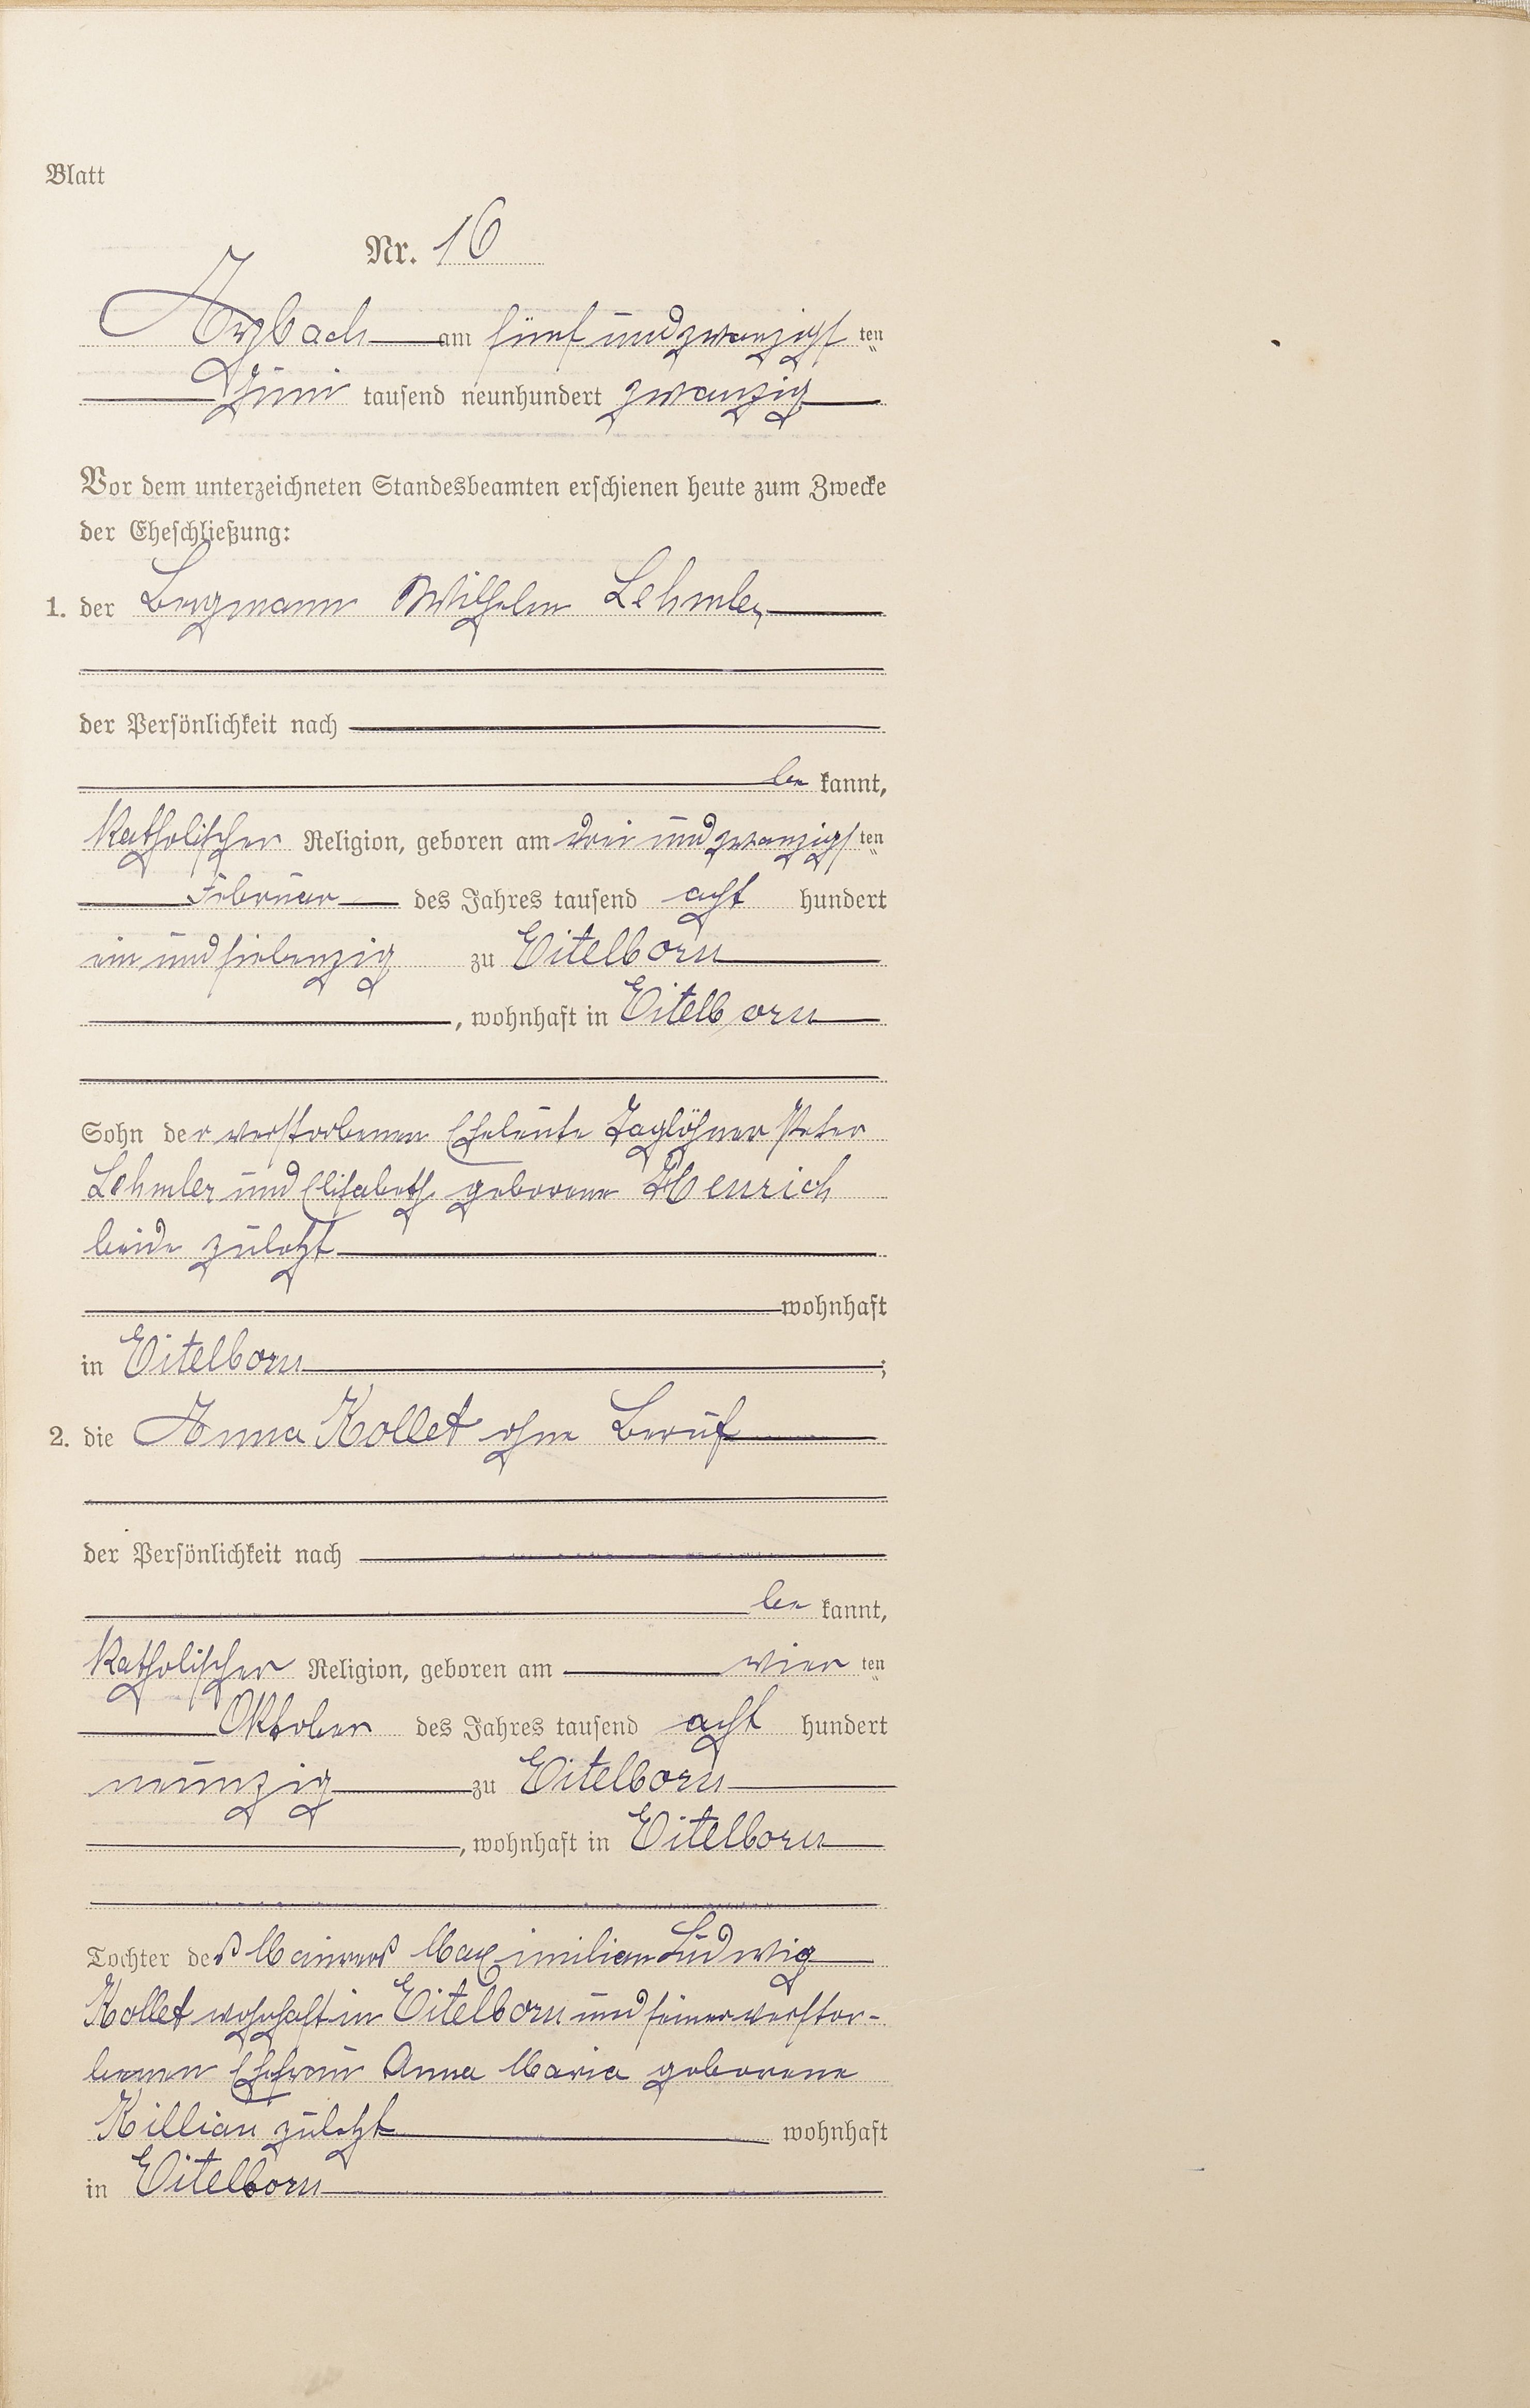 Blatt
Nr. 16
Arzbach am fünf und zwanzigsten
Juni tausend neunhundert zwanzig
Vor dem unterzeichneten Standesbeamten erschienen heute zum Zwecke
der Eheschließung:
1. der Bergmann Wilhelm Lehmler
der Persönlichkeit nach
be kannt,
katholischer Religion, geboren am drei und zwanzigsten
Februar des Jahres tausend acht hundert
ein und siebenzig zu Eitelborn
, wohnhaft in Eitelborn
Sohn der verstorbenen Eheleute Taglöhner Peter
Lehmler und Elisabeth geborene Henrich
beide zuletzt
wohnhaft
in Eitelborn ;
2. die Anna Kollet ohne Beruf
der Persönlichkeit nach
be kannt,
katholischer Religion, geboren am vier ten
Oktober des Jahres tausend acht hundert
neunzig zu Eitelborn
, wohnhaft in Eitelborn
Tochter des Maurers Maximilian Ludwig
Kollet wohnhaft in Eitelborn und seiner verstor-
benen Ehefrau Anna Maria geborene
Killian zuletzt wohnhaft
in Eitelborn